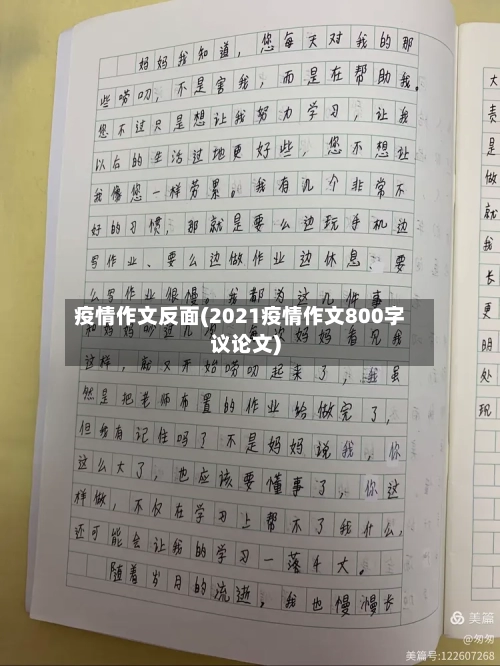 妈妈我知道，您每天对我的那
些唠叨，不是害我，而是在帮助我。
您不过只是想让我努力学习，让我
以后的生活过地更好些，您不想让
我像您一样劳累。我有几个非常不
好的习惯，那就是要么边玩手机边
写作业、要么边做作业边休息、要
么写作业很慢。我都为这几件事
疫情作文反面(2021疫情作文800字
议论文)
妈妈看见我
这样，就又开始唠叨起来了，虽
然是把老师布置的作业给做完了，
但我有记住吗？不是妈妈说我，你
这么大了，也应该要懂事了，你这
样做，不仅在学习上帮不了我什么，
还可能会让我的学习一落千丈。
随着岁月的流逝，我也慢慢长
大
责
是
做
就
我
更
明
处
现
美篇
@匆匆
美篇号:122607268